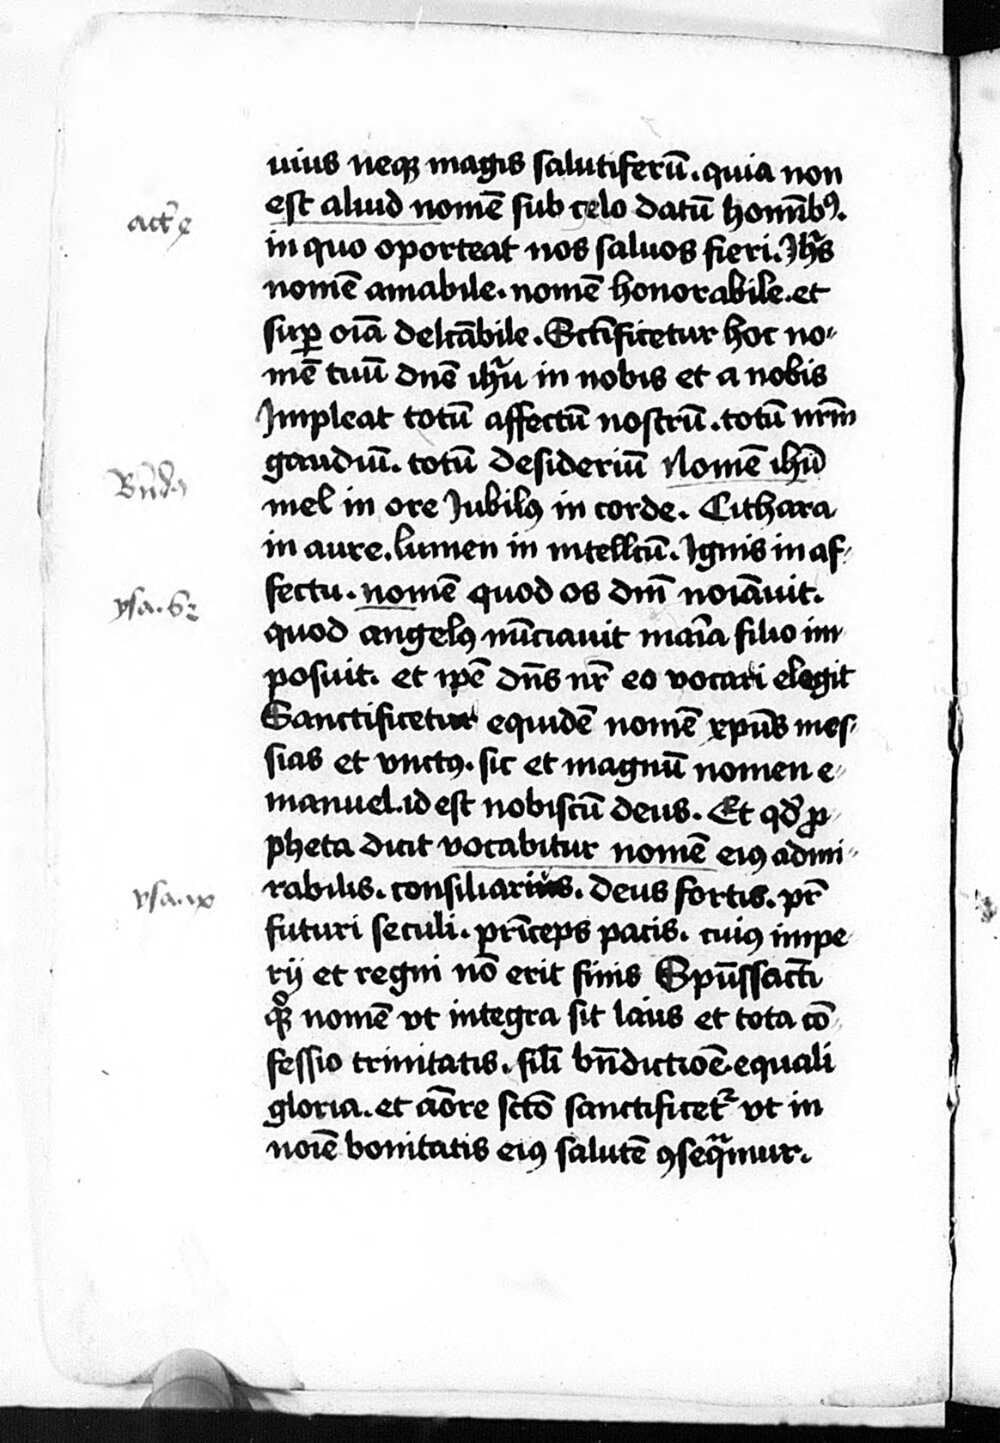 uius neqꝫ magis salutiferū. quia non
est aliud nomē sub celo datū homībꝰ.
in quo oporteat nos saluos fieri. Jhūs
nomē amabile. nomē honorabile. et
suꝑ oīa delcābile. Sctīficetur hoc no-
mē tuū dnē ihū in nobis et a nobis
Jmpleat totū affectū nostrū. totū nrm̄
gaudiū. totū desideriū Nomē ihū
mel in ore Jubilꝰ in corde. Cithara
in aure. lumen in intellcū. Jgnis in af-
fectu. nomē quod os dm̄ noīauit.
quod angelꝰ nūciauit maīa filio im
posuit. et ip̄e dn̄s nr̄ eo vocari elegit
Sanctificetur equidē nomē xpūs mes-
sias et vnctꝰ. sic et magnū nomen e-
manuel. id est nobiscū deus. Et qd̓ ꝓ-
pheta dicit vocabitur nomē eiꝰ admi-
rabilis. consiliarius. deus fortis. pr̄
futuri seculi. prīceps pacis. cuiꝰ impe
rij et regni nō erit finis Spūssactī
qꝫ nomē vt integra sit laus et tota cō-
fessio trinitatis. sili̅ bn̄dictioē equali
gloria. et aōre sctō sanctificetᷣ vt in
noīe bonitatis eiꝰ salutē ꝯseqᷓmur.
act̄
Bn̄dꝰ
ysa. 62
ysa. ix